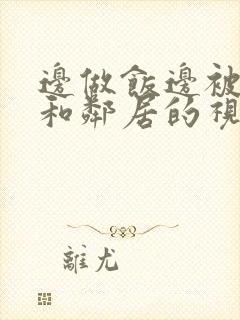 邊做飯邊被
和鄰居的視
離尤